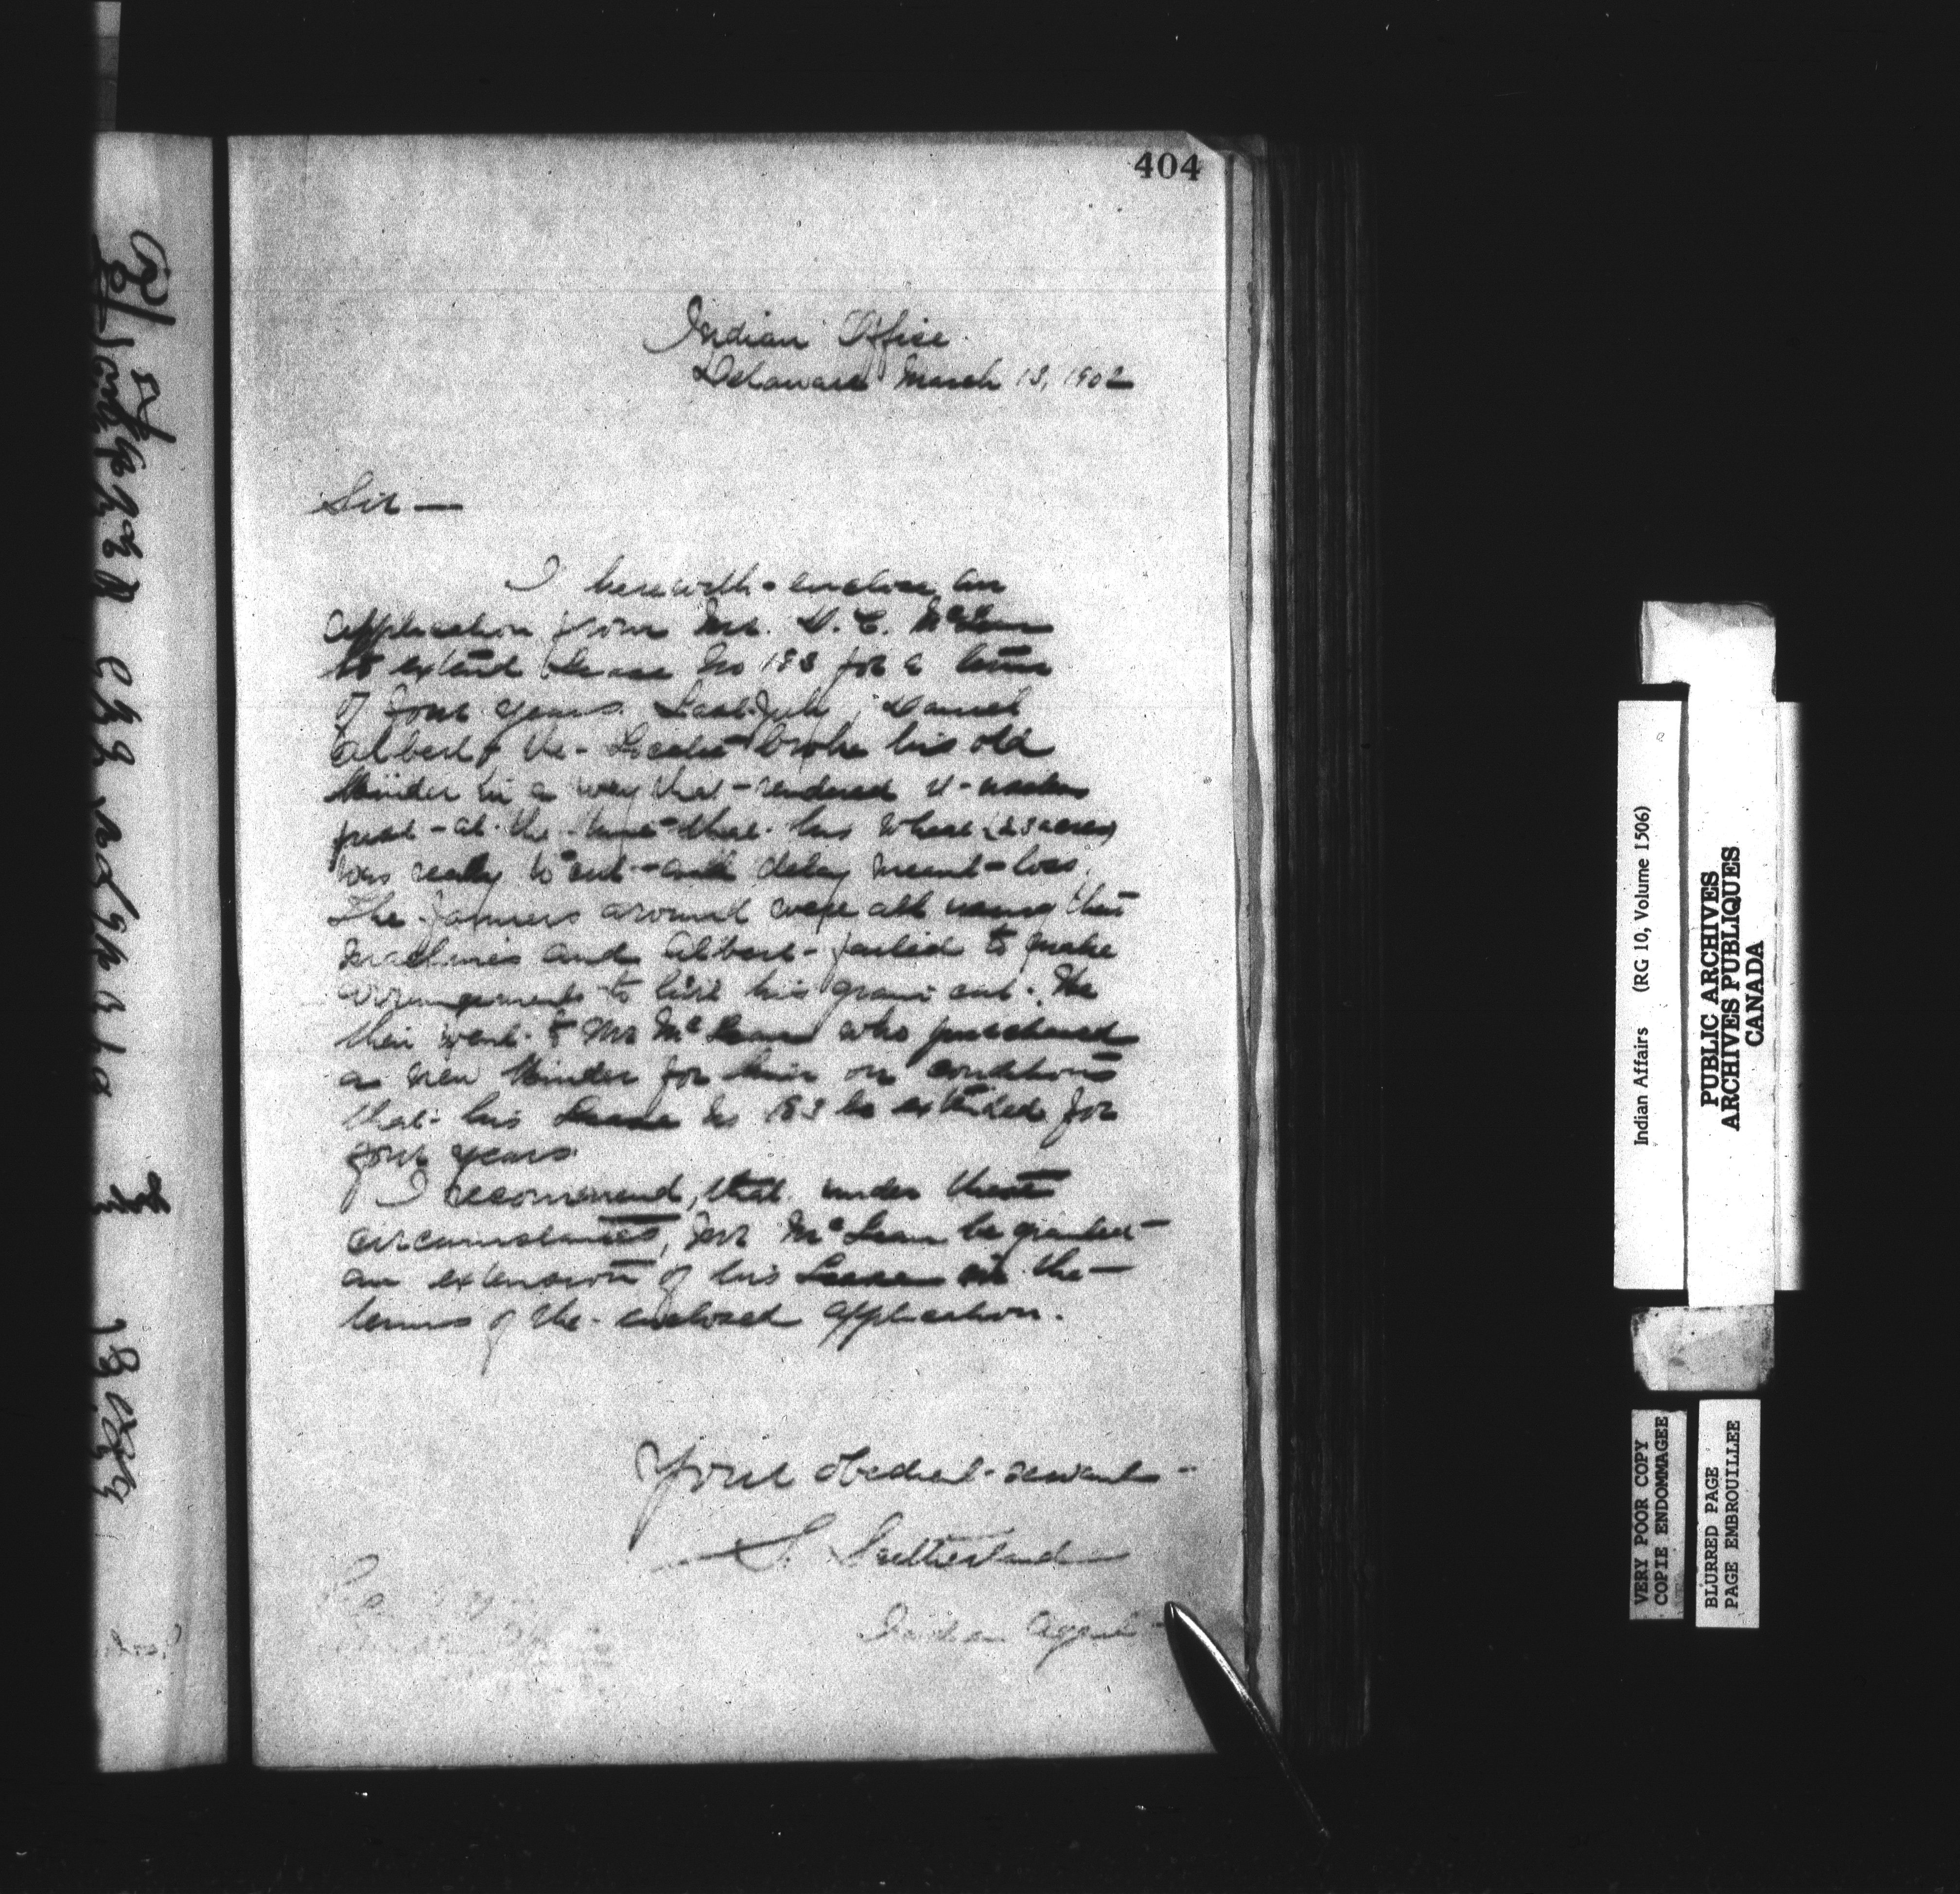 404
Indian Office
Delaware March 13, 1902
Sir —
I herewith enclose an
application from Mr. D. C. McLean
to extend Lease No 183 for a term
of four years. Last July, Daniel
Albert, the Locatee broke his old
binder in a way that rendered it useless
just at the time that his wheat (23 acres)
was ready to cut and delay meant loss.
The farmers around were all using their
machines and Albert failed to make
arrangements to have his grain cut. He
then went to Mr McLean who purchased
a new binder for him on conditions
that his Lease No 183 be extended for
four years
I recommend, that under these
circumstances, Mr McLean be granted
an extension of his Lease in the
terms of the enclosed application.
Your obedient servant
S. Sutherland
Indian Agent
Indian Affairs (RG 10, Volume 1506)
PUBLIC ARCHIVES
ARCHIVES PUBLIQUES
CANADA
VERY POOR COPY
COPIE ENDOMMAGEE
BLURRED PAGE
PAGE EMBROUILLEE